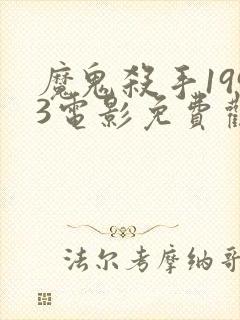 魔鬼殺手199
3電影免費觀
法尔考摩纳哥